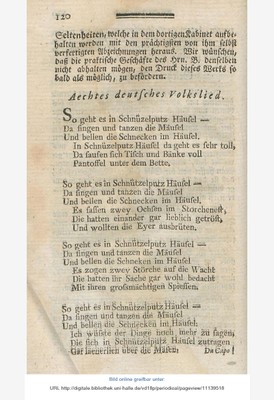 120
Seltenheiten, welche in dem dortigen Kabinet aufbe-
halten werden mit den prächtigsten von ihm selbst
verfertigten Abzeichnungen heraus. Wir wünschen,
daß die praktische Geschäfte des Hrn. B. denselben
nicht abhalten mögen, den Druck dieses Werks so
bald als möglich, zu befördern.
Aechtes deutsches Volkslied.
So geht es in Schnützelputz Häusel —
Da singen und tanzen die Mäusel
Und bellen die Schnecken im Häusel.
In Schnützelputz Häusel da geht es sehr toll,
Da saufen sich Tisch und Bänke voll
Pantoffel unter dem Bette.
So geht es in Schnützelputz Häusel —
Da singen und tanzen die Mäusel
Und bellen die Schnecken im Häusel,
Es saßen zwey Ochsen im Storchenest,
Die hatten einander gar lieblich getröst,
Und wollten die Eyer ausbrüten.
So geht es in Schnützelputz Häusel —
Da singen und tanzen die Mäusel
Und bellen die Schnecken im Häusel
Es zogen zwey Störche auf die Wacht
Die hatten ihr Sache gar wohl bedacht
Mit ihren großmächtigen Spiessen.
So geht es in Schnützelputz Häusel —
Da singen und tanzen die Mäusel
Und bellen die Schnecken im Häusel.
Ich wüßte der Dinge noch mehr zu sagen,
Die sich in Schnützelputz Häusel zutragen
Gar lächerlich über die Maßen. Da Capo!
Bild online greifbar unter:
URL http://digitale.bibliothek.uni-halle.de/vd18p/periodical/pageview/11139018